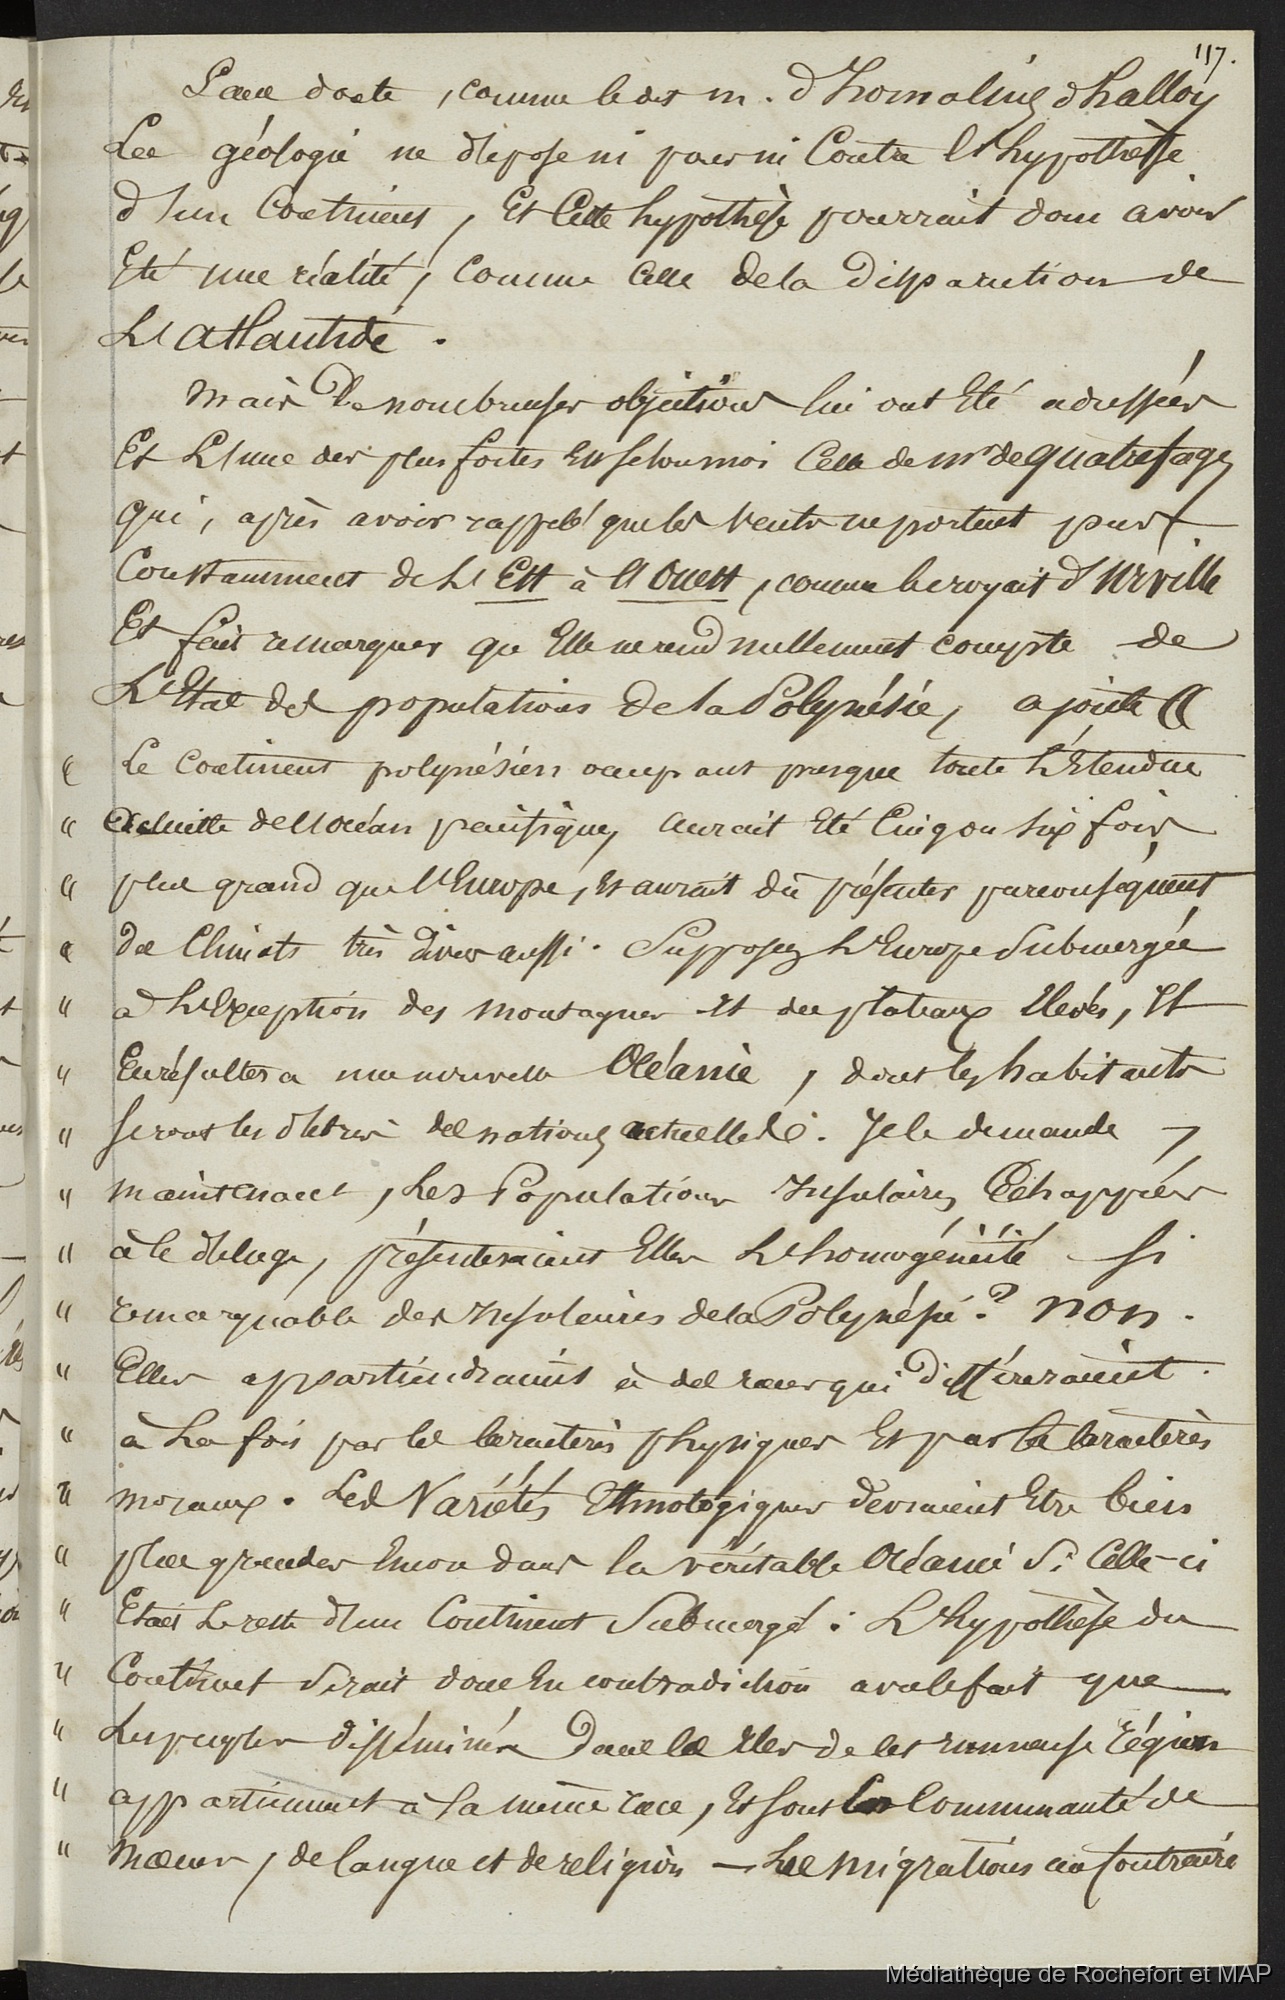 117.
Sans doute, comme le dit m. d'homalius d'halloy
La géologie ne dépose ni pour ni Contre l'hypothèse
d'un Continent, Et Cette hypothèse pourrait donc avoir
Eté une réalité, Comme Celle de la disparution de
L'atlantide.
Mais De nombreuses objections lui ont Eté adressées
Et L'une des plus fortes Est selon moi Celle de mr de quatrefages
qui, après avoir rappelé que les vents ne portent pas
Constamment de L'Est à l'ouest, comme le croyait d'urville
Et fait remarquer qu'Elle ne rend nullement compte de
L'Etat des populations de la Polynésie, ajoute «
« Le Continent polynésien occupant presque toute L'Etendue
« actuelle de l'océan pacifique, aurait Eté Cinq ou six fois
« plus grand que l'Europe, Et aurait dû présenter par conséquent
« des Climats très divers aussi. Supposez L'Europe Submergée
« à L'Exception des montagnes et des plateaux Elevés, Il
« En résultera une nouvelle Océanie, dont les habitants
« seront les débris des nations actuelles. Je le demande,
« maintenant, Les Populations Insulaires Echappées
« à ce déluge, présenteraient Elles L'homogénéité si
« remarquable des Insulaires de la Polynésie? non.
« Elles appartiendraient à des races qui Différeraient
« à La fois par les Caractères physiques Et par les Caractères
« moraux. Les Variétés Ethnologiques devraient Etre bien
« plus grandes Encore dans la véritable Océanie Si Celle-ci
« Etait Le reste d'un Continent Submergé. L'hypothèse du
« Continent Serait donc En contradiction avec le fait que
« Les peuples disséminés Dans les Iles de cet immense région
« appartiennent à la même race, Et sont En Communauté de
« Moeurs, de langue et de religion — Les Migrations au Contraire
Médiathèque de Rochefort et MAP